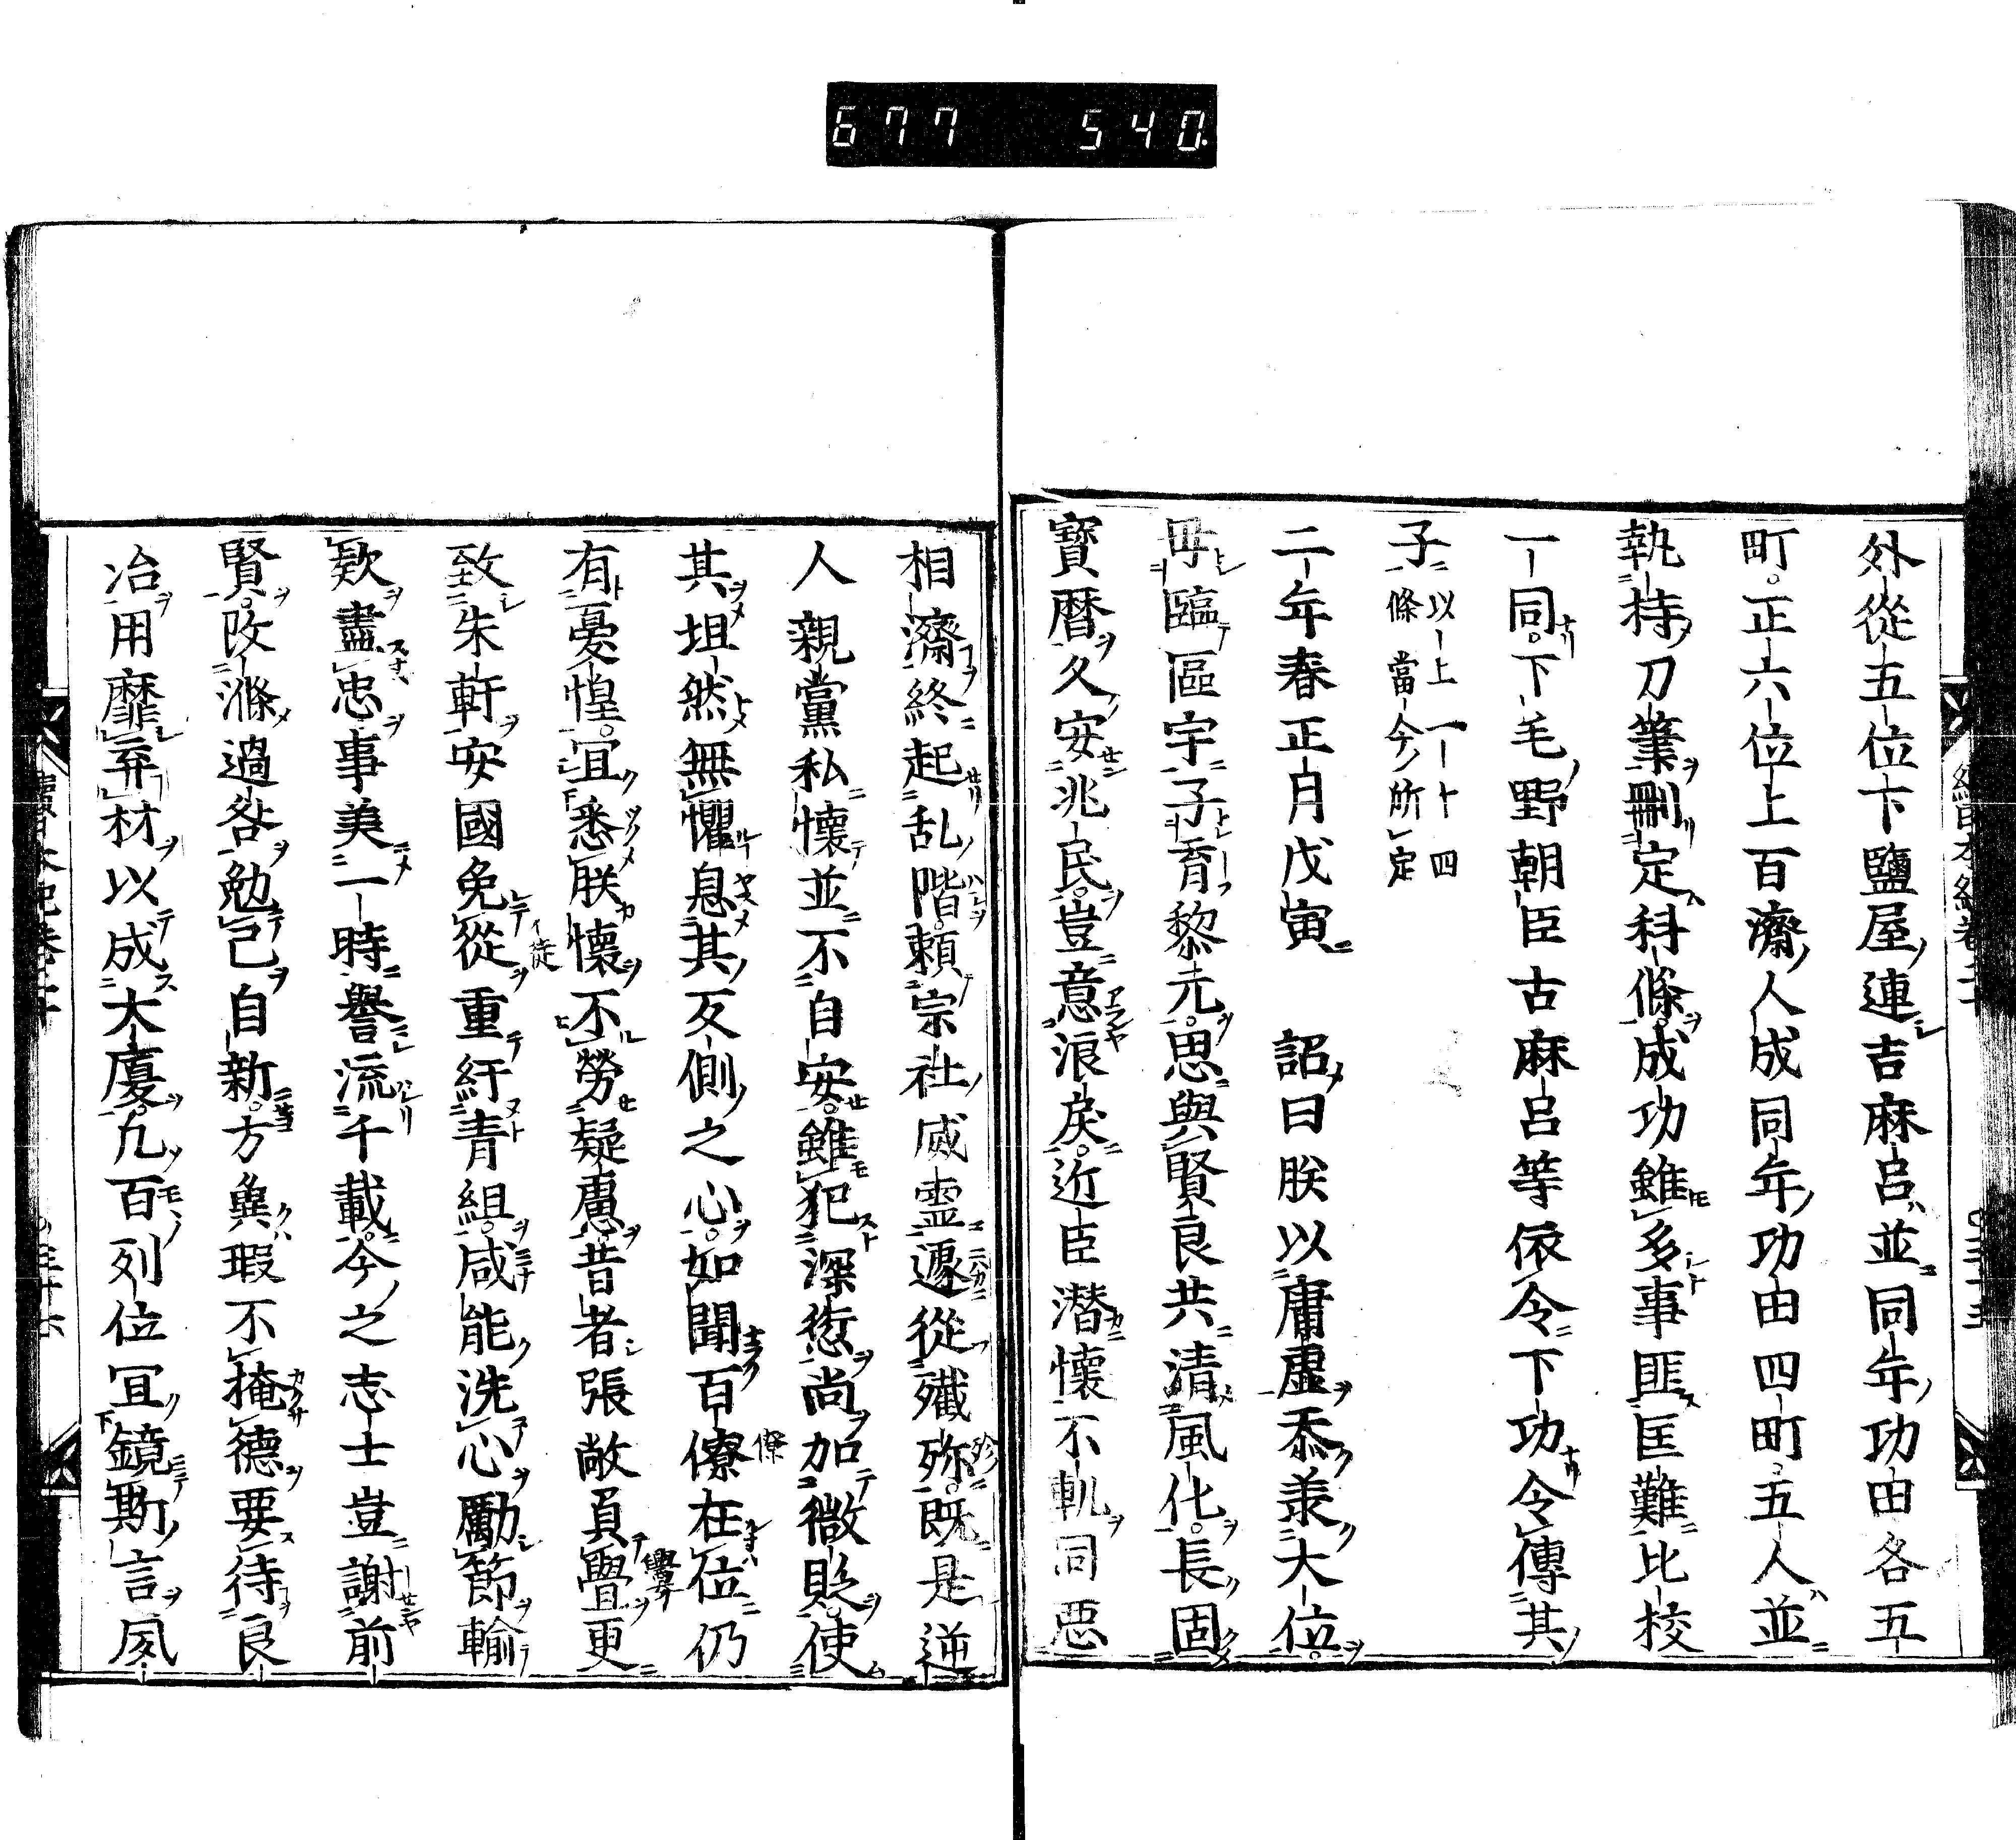 677 540
外從五位下鹽屋連吉麻呂並同年功田各五
町。正六位上百濟人成同年功田四町。五人並
執持刀筆刪定科條。成功雖多事匪匡難比校
一同。下毛野朝臣古麻呂等依令下功令傳其
子以上一十四條當今所定
二年春正月戊寅 詔曰朕以庸虛忝承大位。
毋臨區宇子育黎元。思與賢良共清風化。長固
寶曆久安兆民。豈意浪戾。近臣潛懷不軌同惡
相濟終起乱階。頼宗社威靈遽從殲殄。既是逆
人親黨私懷並不自安。雖犯深愆尚加微貶。使
其坦然無懼息其反側之心。如聞百僚在位仍
有憂惶。宜悉朕懷不勞疑慮。昔者張敞負釁更
致朱軒安國免從重紆青組。咸能洗心勵節輸
欵盡忠事美一時譽流千載。今之志士豈謝前
賢。改滌過咎勉己自新。方冀瑕不掩德要待良
冶用靡弃材以成大廈。凡百列位宜鏡斯言夙